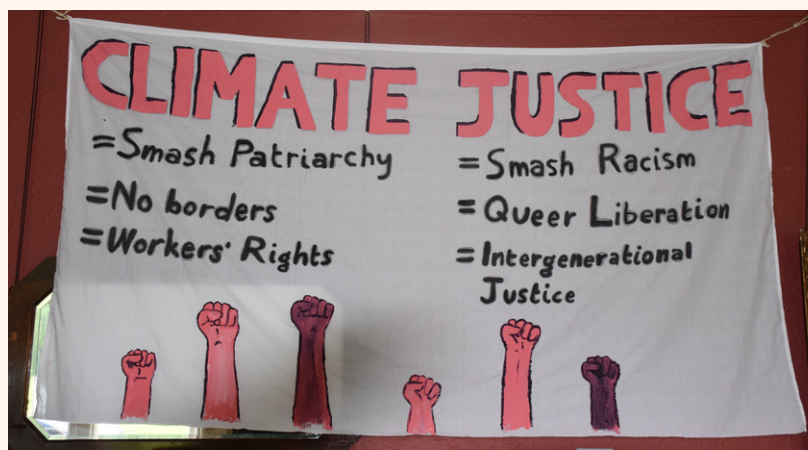 CLIMATE JUSTICE
=Smash Patriarchy
=No borders
=Workers' Rights
=Smash Racism
=Queer Liberation
=Intergenerational
Justice